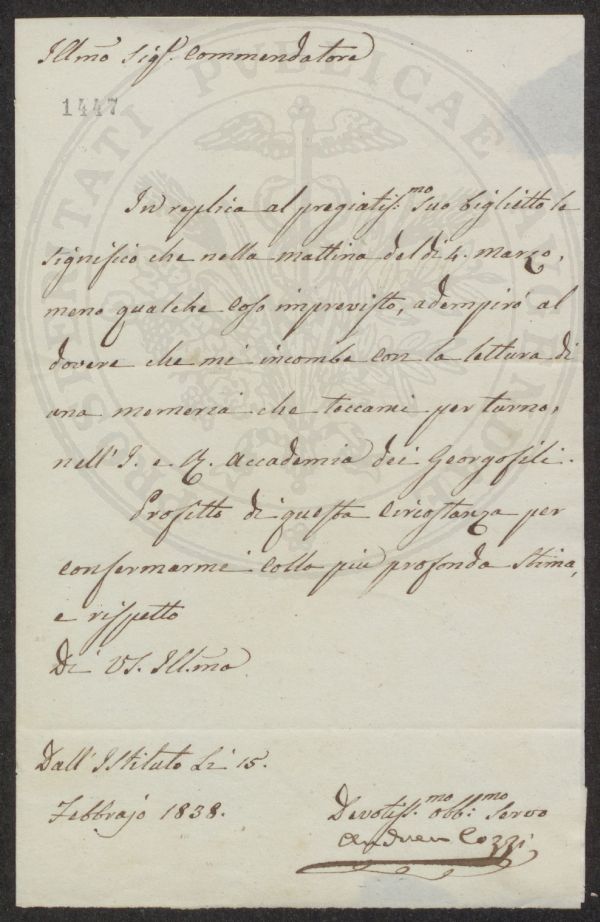 Illmo Sigr. Commendatore
1447
In replica al pregiatiss:mo suo biglietto le
significo che nella mattina del dì 4. marzo,
meno qualche caso imprevisto, adempirò al
dovere che mi incombe con la lettura di
una memoria che toccami per turno,
nell' I. e R. Accademia dei Georgofili.
Profitto di questa circostanza per
confermarmi colla più profonda stima,
e rispetto
Di VS. Illma
Dall' Istituto Li 15.
Febbrajo 1838.
Devotiss:mo obb:mo Servo
Andrea Cozzi
PROSPERITATI PUBLICAE AUGENDAE